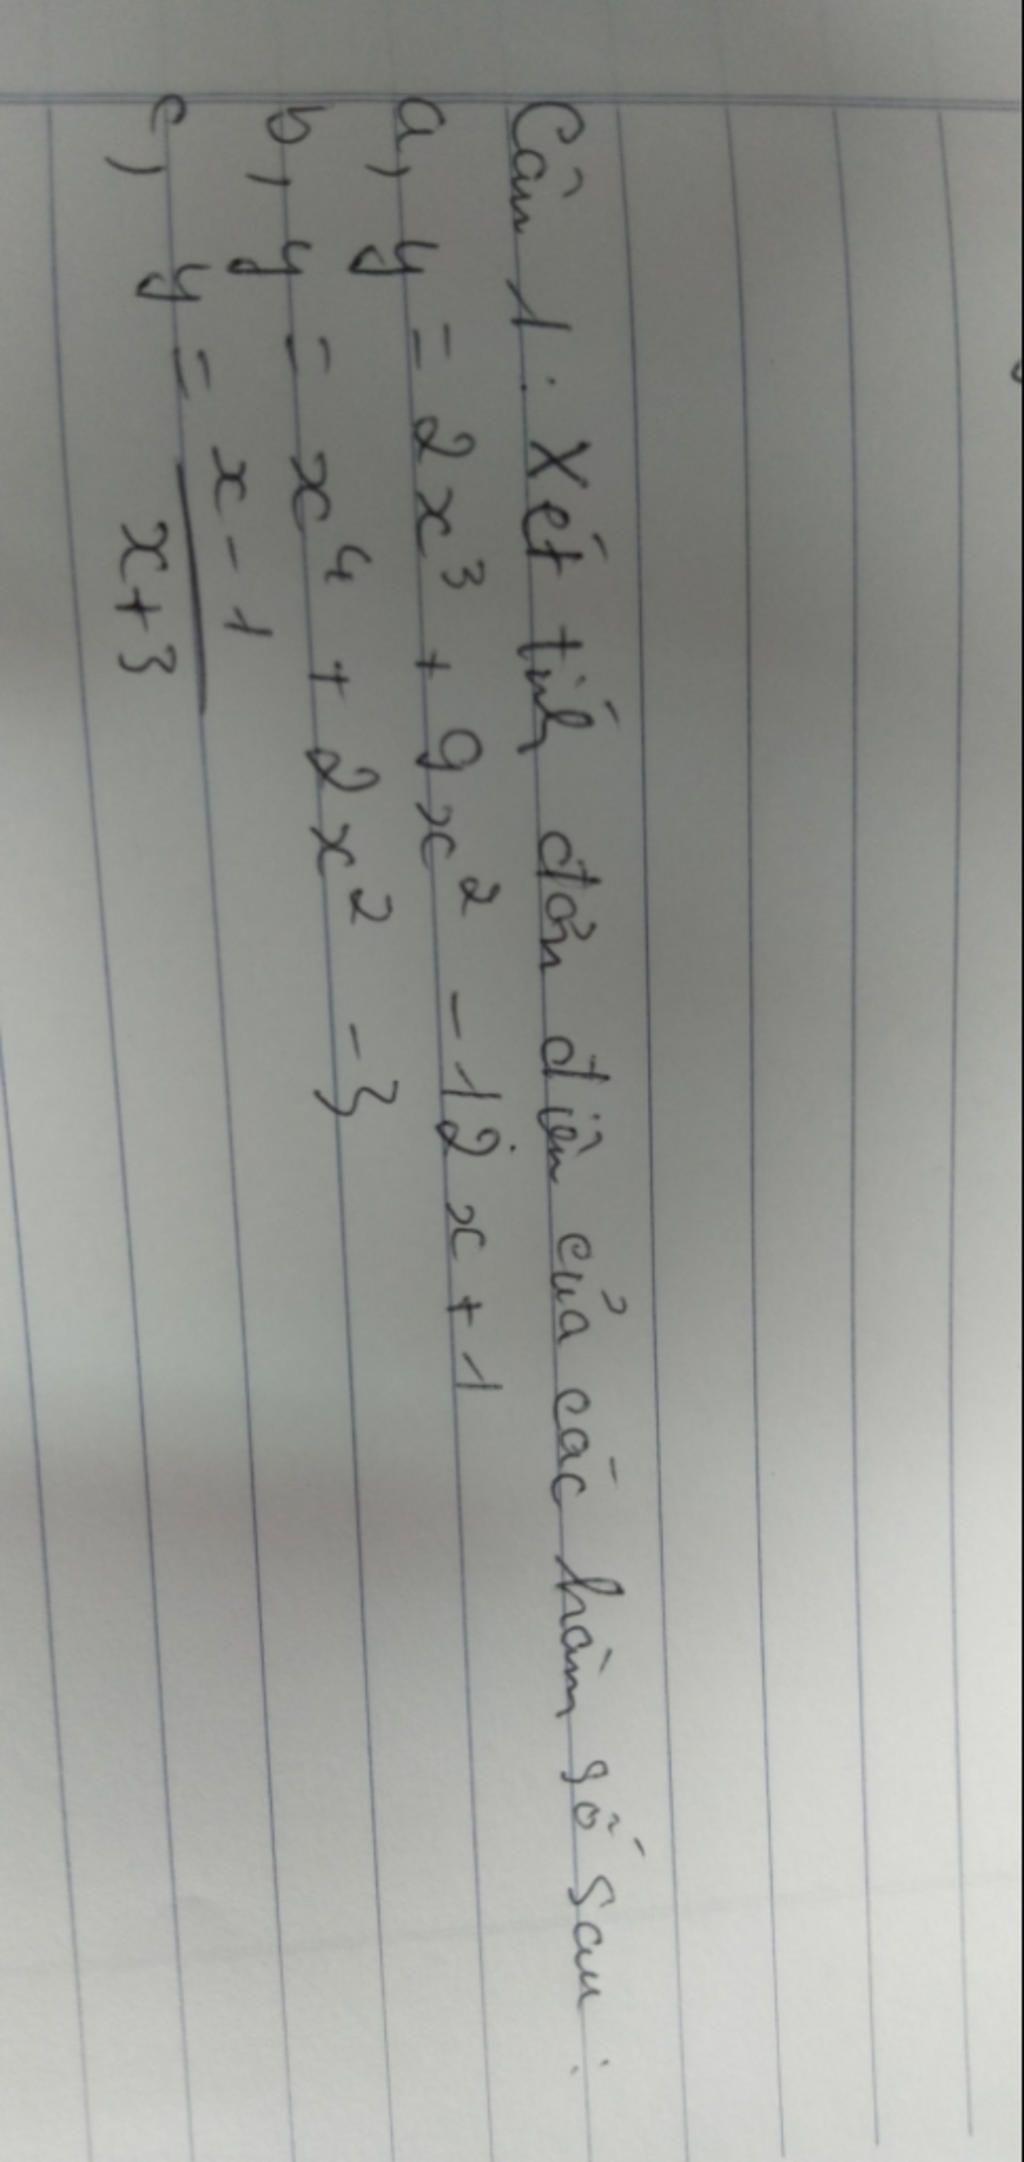 Câu 1. Xét tính đơn điệu của các hàm số sau:
a, y = 2x³ + 9x² - 12x + 1
b, y = x⁴ + 2x² - 3
c, y = x - 1
x + 3